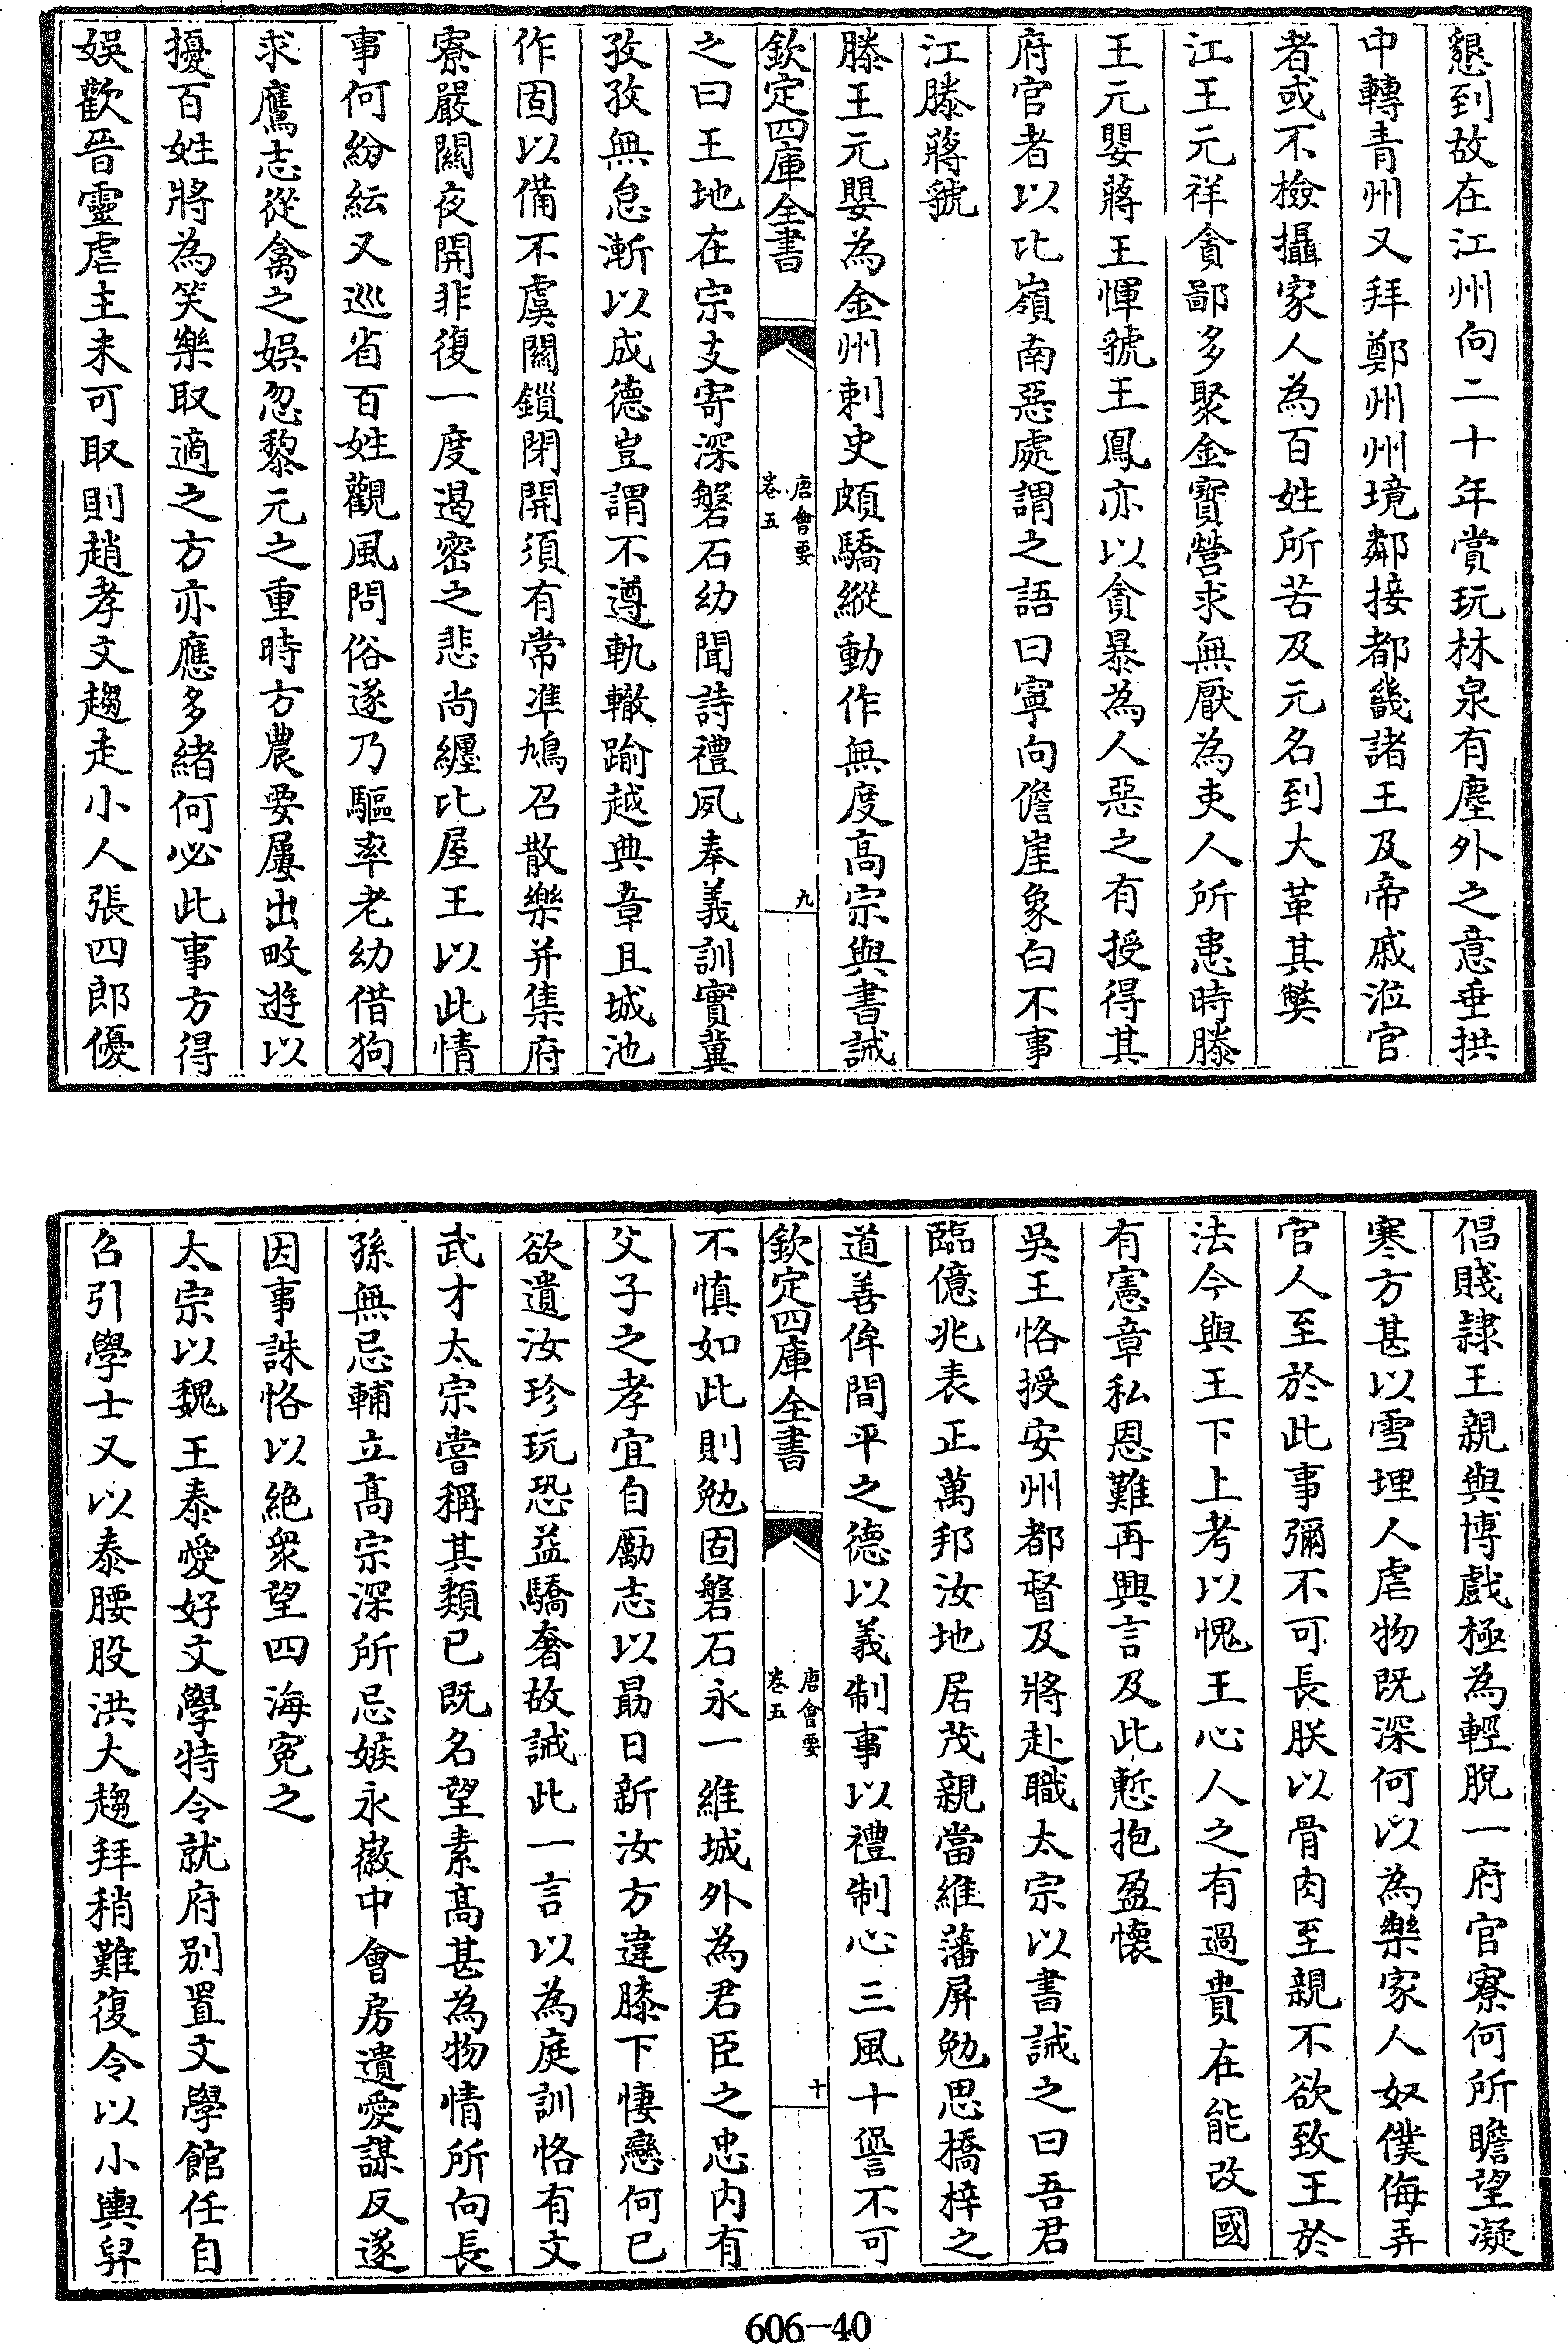 懇到故在江州向二十年賞玩林泉有塵外之意垂拱
中轉青州又拜鄭州州境鄰接都畿諸王及帝戚涖官
者或不檢攝家人為百姓所苦及元名到大革其獘
江王元祥貪鄙多聚金寳營求無厭為吏人所患時滕
王元嬰蔣王惲虢王鳳亦以貪暴為人惡之有授得其
府官者以比嶺南惡處謂之語曰寧向儋崖象白不事
江滕蔣虢
滕王元嬰為金州刺史頗驕縱動作無度高宗與書誡
欽定四庫全書
唐會要
卷五
九
之曰王地在宗支寄深磐石幼聞詩禮夙奉義訓實冀
孜孜無怠漸以成德豈謂不遵軌轍踰越典章且城池
作固以備不虞關鎖閉開須有常凖鳩召散樂并集府
寮嚴關夜開非復一度遏密之悲尚纒比屋王以此情
事何紛紜又巡省百姓觀風問俗遂乃驅率老幼借狗
求鷹志從禽之娛忽黎元之重時方農要屢出畋遊以
擾百姓將為笑樂取適之方亦應多緒何必此事方得
娛歡晉靈虐主未可取則趙孝文趨走小人張四郎優
倡賤隷王親與博戲極為輕脫一府官寮何所瞻望凝
寒方甚以雪埋人虐物既深何以為樂家人奴僕侮弄
官人至於此事彌不可長朕以骨肉至親不欲致王於
法今與王下上考以愧王心人之有過貴在能改國
有憲章私恩難再興言及此慙抱盈懷
吳王恪授安州都督及將赴職太宗以書誡之曰吾君
臨億兆表正萬邦汝地居茂親當維藩屏勉思橋梓之
道善侔間平之德以義制事以禮制心三風十諐不可
欽定四庫全書
唐會要
卷五
十
不慎如此則勉固磐石永一維城外為君臣之忠内有
父子之孝宜自勵志以勗日新汝方違膝下悽戀何已
欲遺汝珍玩恐益驕奢故誡此一言以為庭訓恪有文
武才太宗嘗稱其類已既名望素髙甚為物情所向長
孫無忌輔立髙宗深所忌嫉永徽中會房遺愛謀反遂
因事誅恪以絶衆望四海冤之
太宗以魏王泰愛好文學特令就府别置文學館任自
召引學士又以泰腰股洪大趨拜稍難復令以小輿舁
606-40